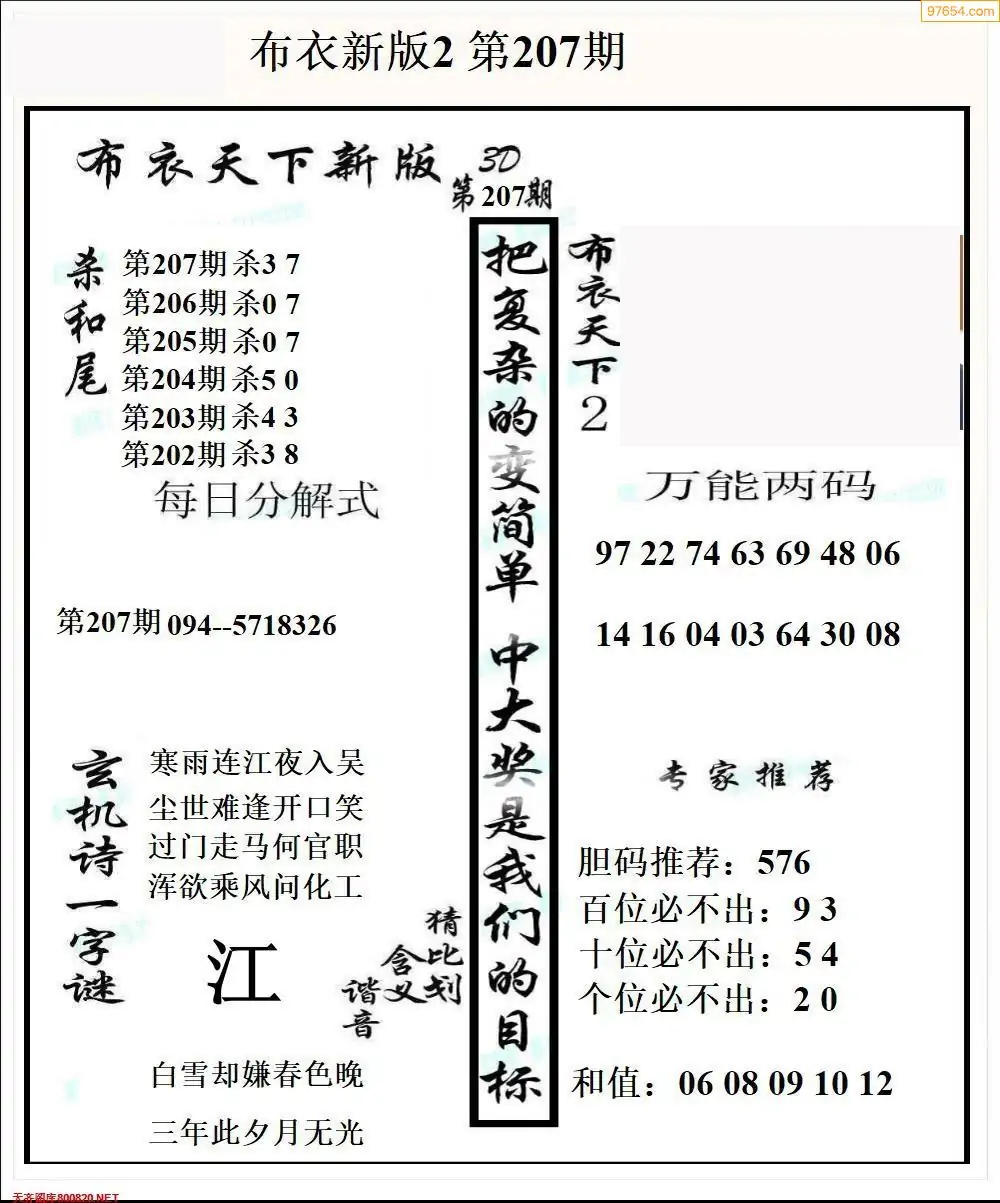 97654.com
布衣新版2 第207期
布衣天下新版 3D
第207期
杀和尾
第207期杀3 7
第206期杀0 7
第205期杀0 7
第204期杀5 0
第203期杀4 3
第202期杀3 8
每日分解式
第207期094--5718326
玄机诗一字谜
寒雨连江夜入吴
尘世难逢开口笑
过门走马何官职
浑欲乘风问化工
江
猜比划
含义
谐音
白雪却嫌春色晚
三年此夕月无光
把复杂的变简单 中大奖是我们的目标
布衣天下2
万能两码
97 22 74 63 69 48 06
14 16 04 03 64 30 08
专家推荐
胆码推荐：576
百位必不出：9 3
十位必不出：5 4
个位必不出：2 0
和值：06 08 09 10 12
天齐图库800820.NET